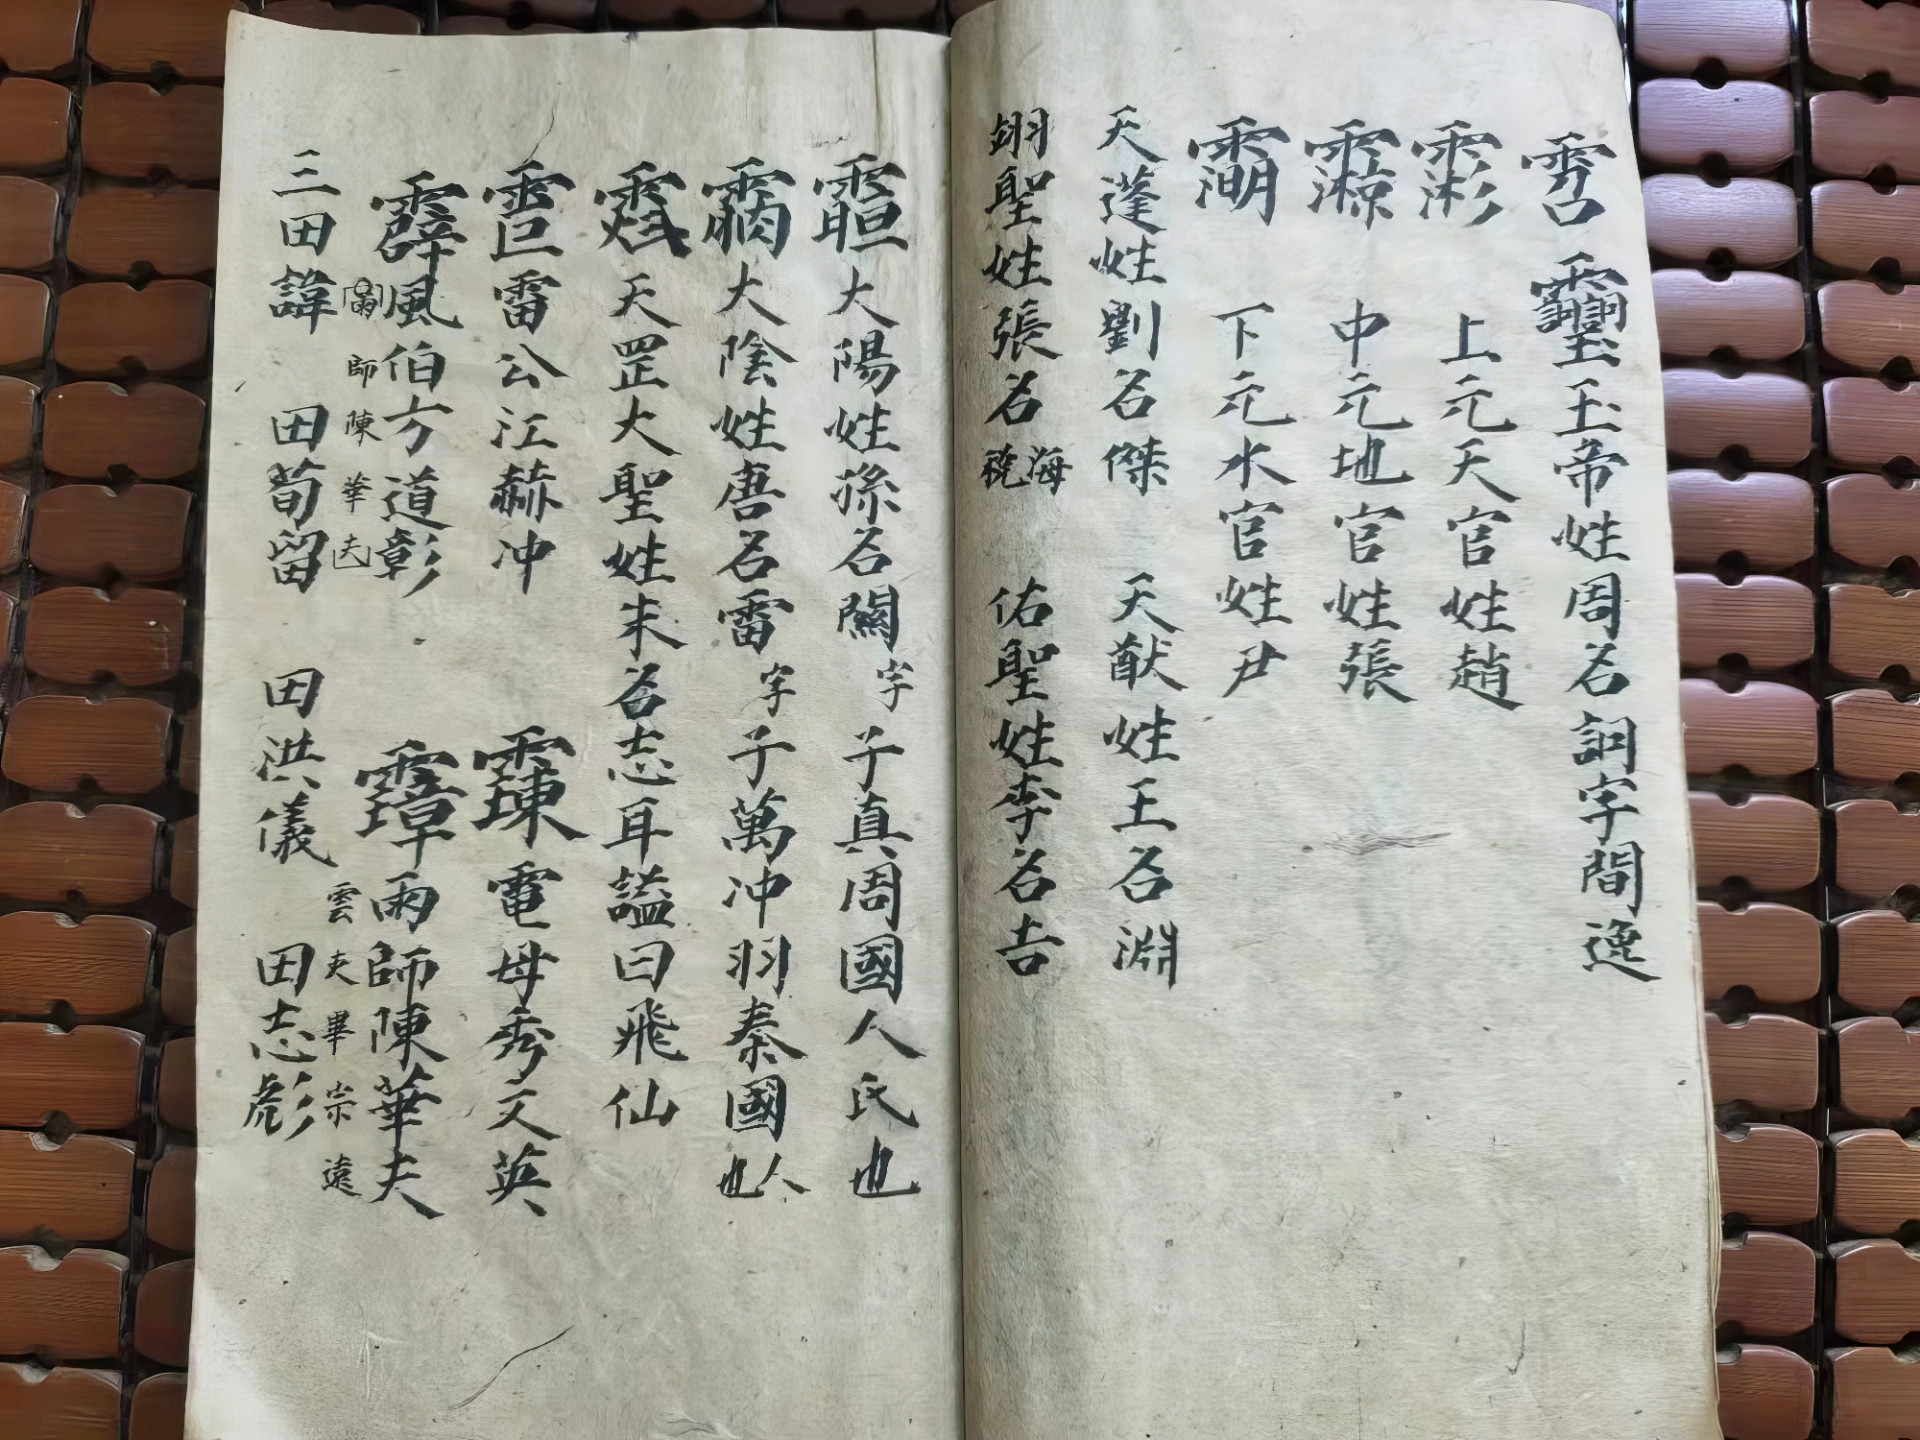 玉帝姓周名詞字間逸
上元天官姓趙
中元地官姓張
下元水官姓尹
天蓬姓劉名傑 天猷姓王名淵
翊聖姓張名 海 佑聖姓李名吉
大陽姓孫名開字子真周國人氏也
大陰姓唐名雷字子萬冲羽秦國人也
天罡大聖姓未名志耳謚曰飛仙
雷公江赫冲 電母秀文英
霹風伯方道彰 雨師陳華夫
師陳華夫 雲夫畢宗遠
三田諱 田荀留 田洪儀 田志彪